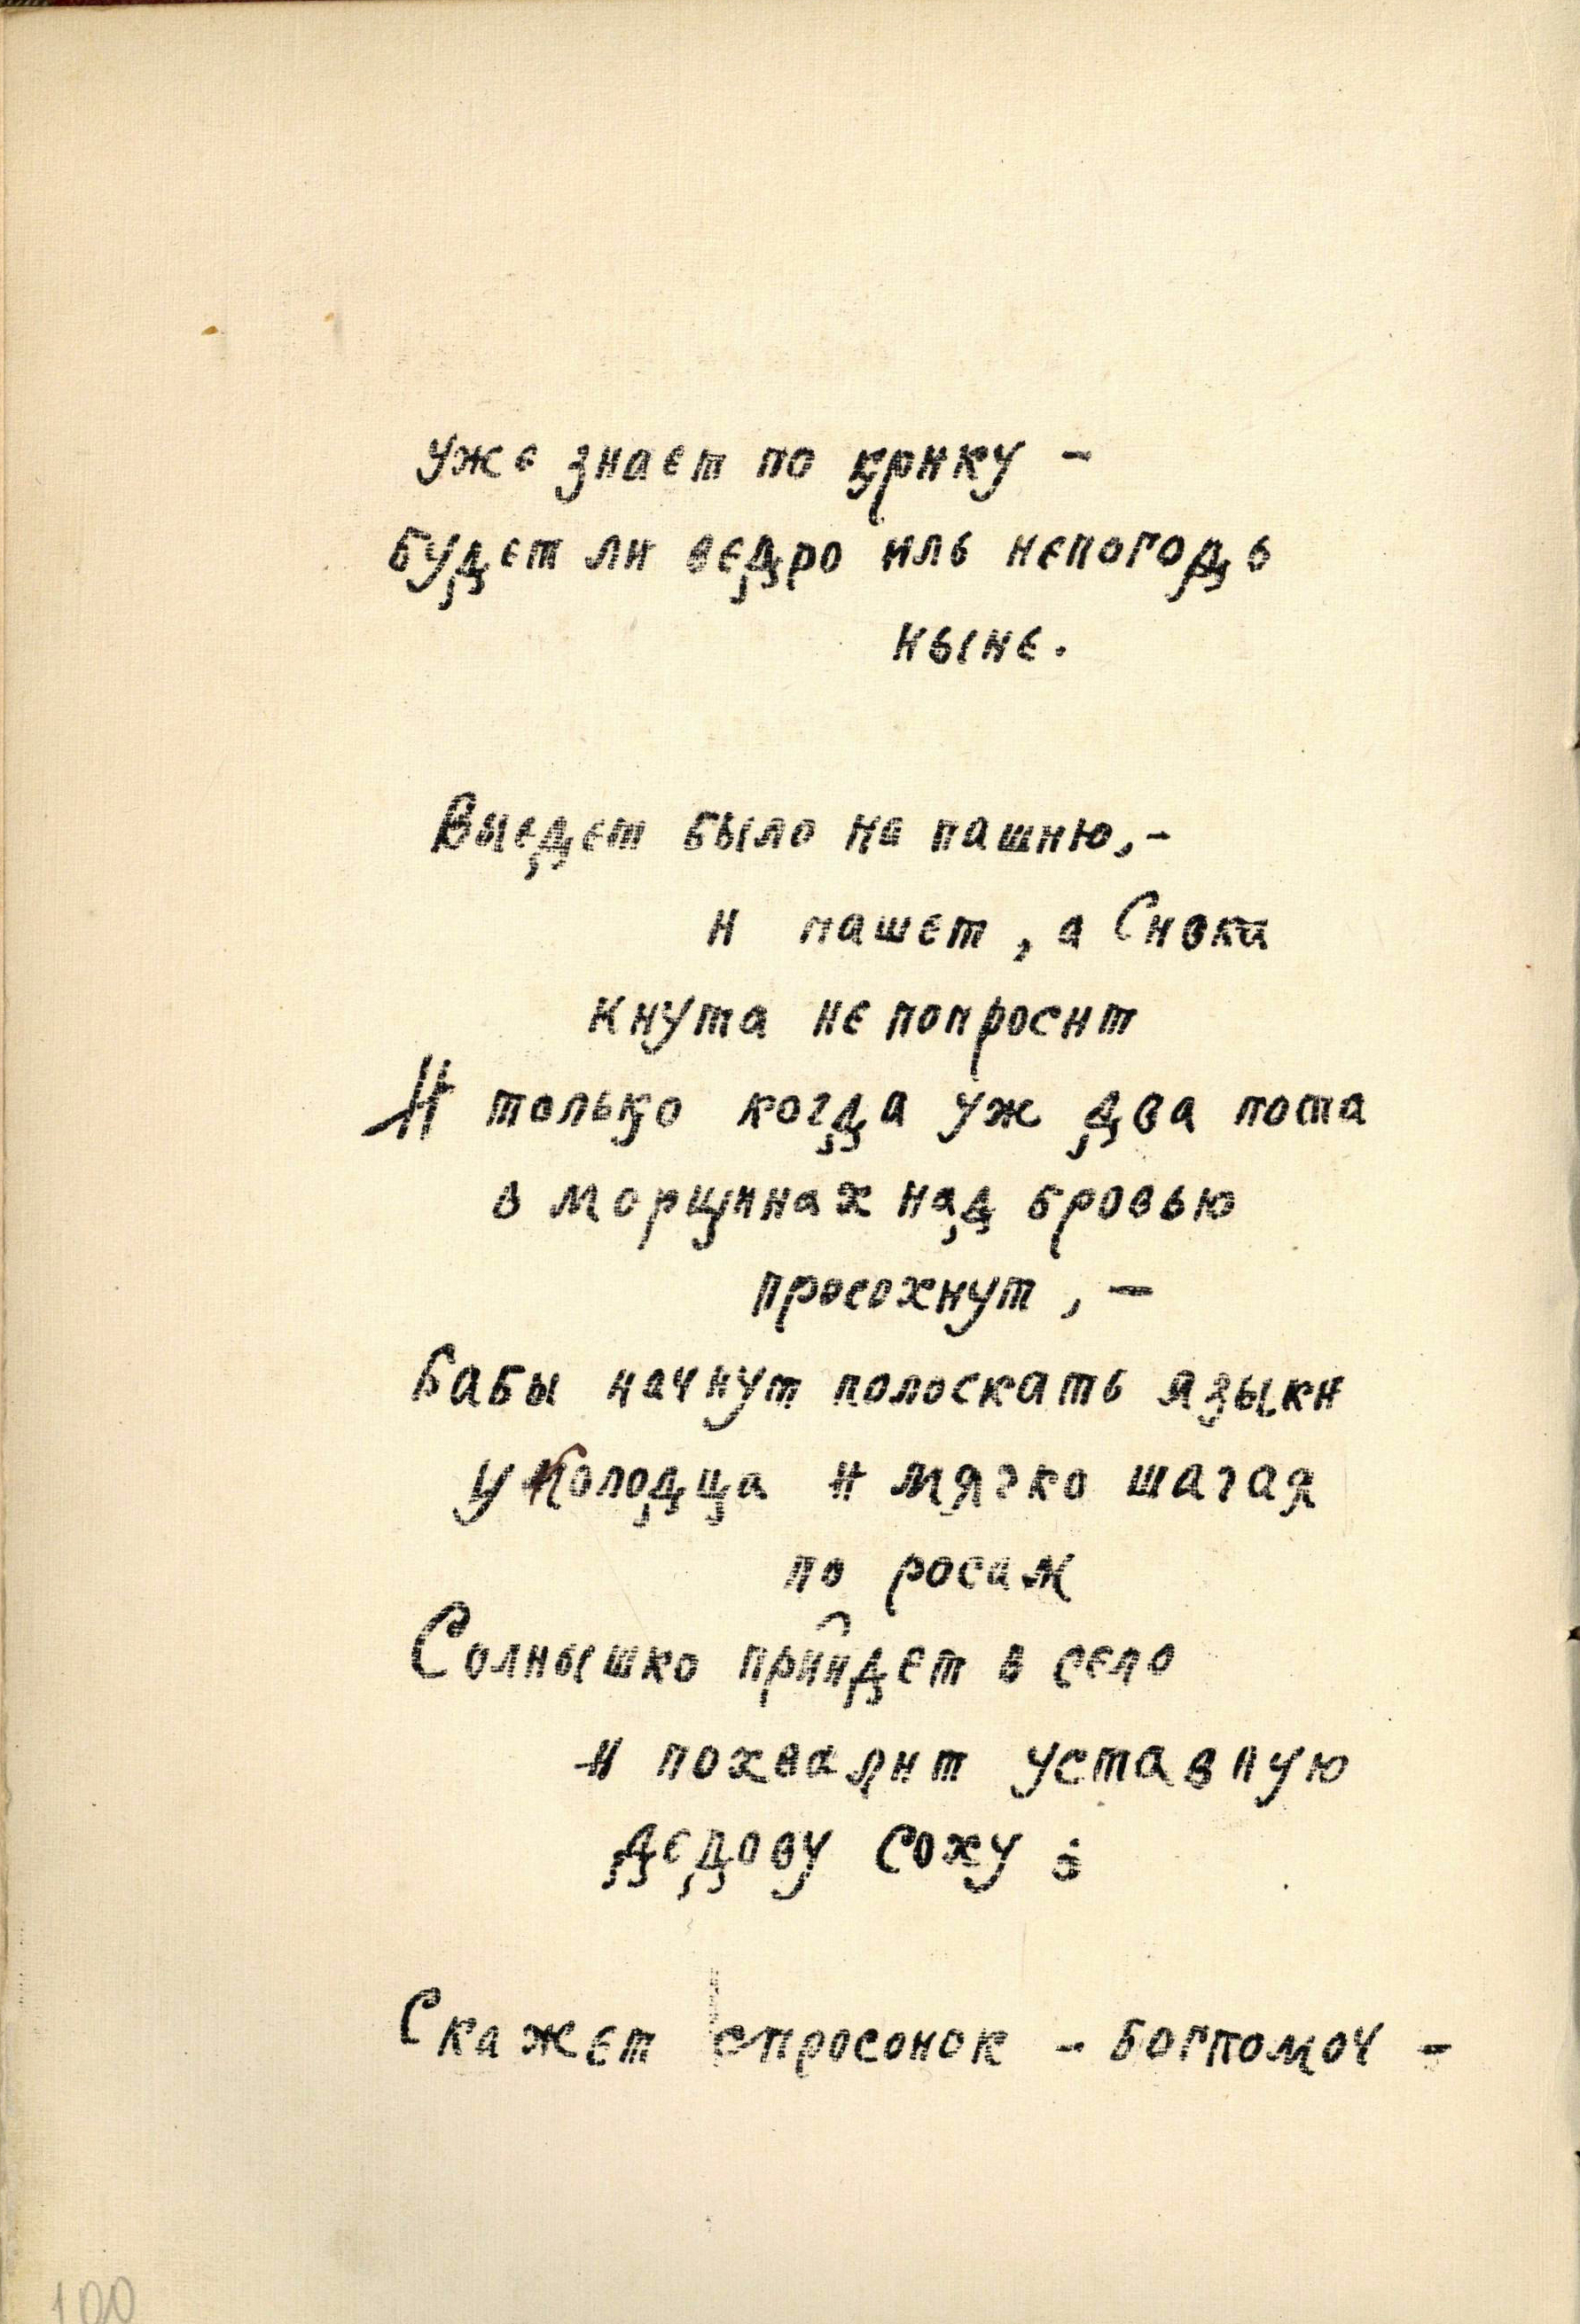 уже знает по крику –
будет ли ведро иль непогодь
ныне.
Выедет было на пашню,–
и пашет, а Сивка
кнута не попросит
И только когда уж два пота
в морщинах над бровью
просохнут, –
Бабы начнут полоскать языки
у Колодца и мягко шагая
по росам
Солнышко прийдет в село
и похвалит уставную
дедову соху:
Скажет спросонок – богпомоч –
100